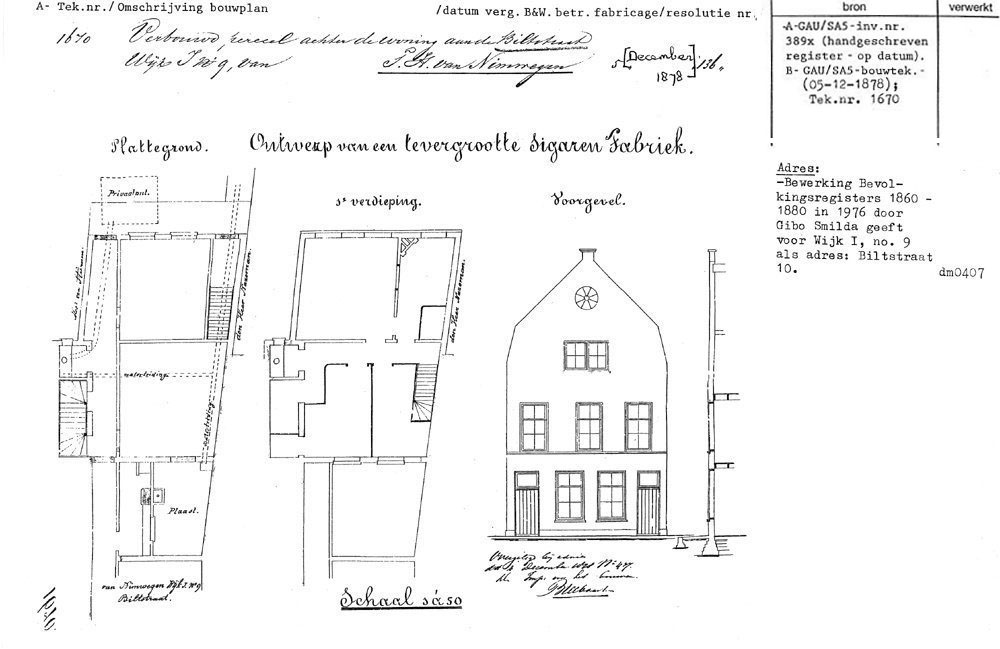 A- Tek.nr./Omschrijving bouwplan
/datum verg. B&W. betr. fabricage/resolutie nr.
bron
verwerkt
1670 Verbouwd perceel achter de woning aan de Biltstraat
Wijk I No 9, van S. H. van Nimwegen
5 [December 1878] 136.
-A-GAU/SA5-inv.nr.
389x (handgeschreven
register - op datum).
B- GAU/SA5-bouwtek.-
(05-12-1878);
Tek.nr. 1670
Plattegrond.
Ontwerp van een tevergrootte Sigaren Fabriek.
Adres:
-Bewerking Bevol-
kingsregisters 1860 -
1880 in 1976 door
Gibo Smilda geeft
voor Wijk I, no. 9
als adres: Biltstraat
10.
dm0407
Privaatput.
1e verdieping.
Voorgevel.
den Heer
waterleiding.
Plaats.
van Nimwegen Wijk I. No 9
Biltstraat.
Schaal 1 à 50
1670